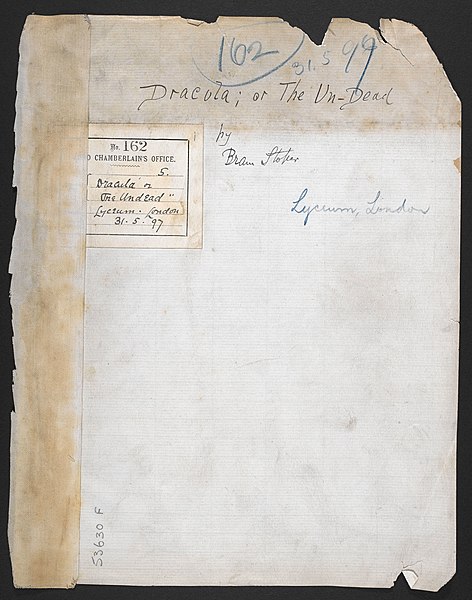 162
31.5 97
Dracula; or The Un-Dead
by
Bram Stoker
No. 162
D CHAMBERLAIN'S OFFICE.
5.
"Dracula" or
The Undead"
Lyceum. London
31. 5. 97
Lyceum, London
53630 F